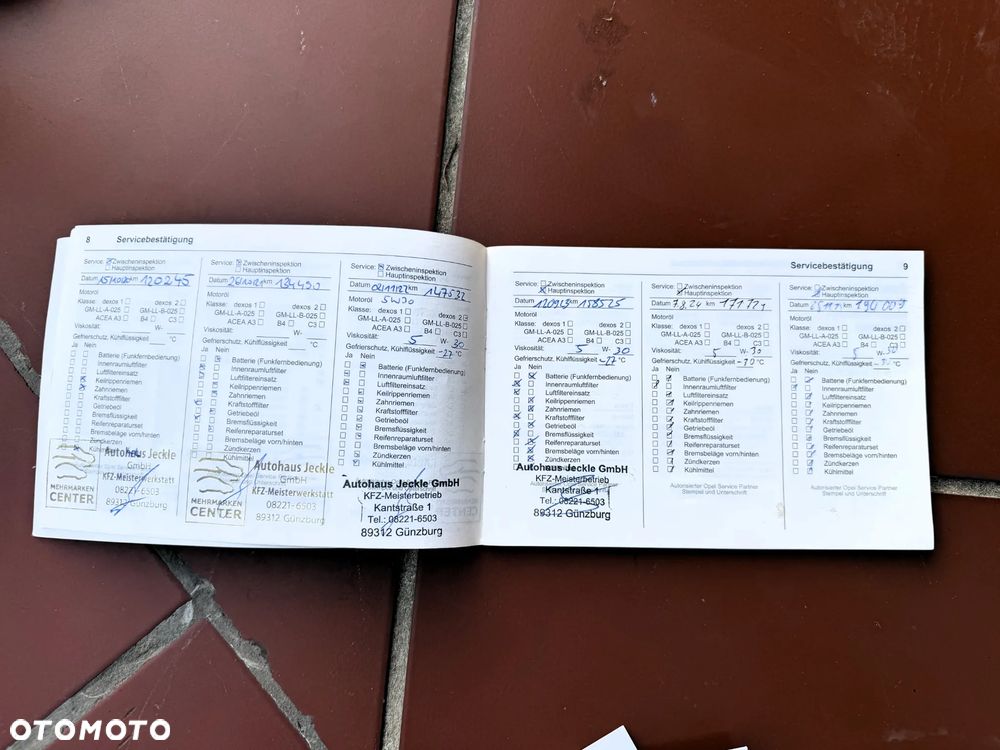 8 Servicebestätigung
Service: Zwischeninspektion
Hauptinspektion
Datum km 120245
Motoröl
Klasse: dexos 1 dexos 2
GM-LL-A-025 GM-LL-B-025
ACEA A3 B4 C3
Viskosität: W-
Gefrierschutz, Kühlflüssigkeit °C
Ja Nein
Batterie (Funkfernbedienung)
Innenraumluftfilter
Luftfiltereinsatz
Keilrippenriemen
Zahnriemen
Kraftstofffilter
Getriebeöl
Bremsflüssigkeit
Reifenreparaturset
Bremsbeläge vorn/hinten
Zündkerzen
Autohaus Jeckle
GmbH
KFZ-Meisterwerkstatt
08221-6503
89312 Günzburg
MEHRMARKEN
CENTER
Service: Zwischeninspektion
Hauptinspektion
Datum km 134490
Motoröl
Klasse: dexos 1 dexos 2
GM-LL-A-025 GM-LL-B-025
ACEA A3 B4 C3
Viskosität: W-
Gefrierschutz, Kühlflüssigkeit °C
Ja Nein
Batterie (Funkfernbedienung)
Innenraumluftfilter
Luftfiltereinsatz
Keilrippenriemen
Zahnriemen
Kraftstofffilter
Getriebeöl
Bremsflüssigkeit
Reifenreparaturset
Bremsbeläge vorn/hinten
Zündkerzen
Kühlmittel
Autohaus Jeckle
GmbH
KFZ-Meisterwerkstatt
08221-6503
89312 Günzburg
MEHRMARKEN
CENTER
Service: Zwischeninspektion
Hauptinspektion
Datum 147532
Motoröl 5W30
Klasse: dexos 1 dexos 2
GM-LL-A-025 GM-LL-B-025
ACEA A3 B4 C3
Viskosität: 5 W- 30
Gefrierschutz, Kühlflüssigkeit -27 °C
Ja Nein
Batterie (Funkfernbedienung)
Innenraumluftfilter
Luftfiltereinsatz
Keilrippenriemen
Zahnriemen
Kraftstofffilter
Getriebeöl
Bremsflüssigkeit
Reifenreparaturset
Bremsbeläge vorn/hinten
Zündkerzen
Kühlmittel
Autohaus Jeckle GmbH
KFZ-Meisterbetrieb
Kantstraße 1
Tel.: 08221-6503
89312 Günzburg
Servicebestätigung 9
Service: Zwischeninspektion
Hauptinspektion
Datum 158525
Motoröl
Klasse: dexos 1 dexos 2
GM-LL-A-025 GM-LL-B-025
ACEA A3 B4 C3
Viskosität: 5 W- 30
Gefrierschutz, Kühlflüssigkeit °C
Ja Nein
Batterie (Funkfernbedienung)
Innenraumluftfilter
Luftfiltereinsatz
Keilrippenriemen
Zahnriemen
Kraftstofffilter
Getriebeöl
Bremsflüssigkeit
Reifenreparaturset
Bremsbeläge vorn/hinten
Zündkerzen
Autohaus Jeckle GmbH
KFZ-Meisterbetrieb
Kantstraße 1
Tel.: 08221-6503
89312 Günzburg
Service: Zwischeninspektion
Hauptinspektion
Datum 7.8.24 km
Motoröl
Klasse: dexos 1 dexos 2
GM-LL-A-025 GM-LL-B-025
ACEA A3 B4 C3
Viskosität: 5 W- 30
Gefrierschutz, Kühlflüssigkeit °C
Ja Nein
Batterie (Funkfernbedienung)
Innenraumluftfilter
Luftfiltereinsatz
Keilrippenriemen
Zahnriemen
Kraftstofffilter
Getriebeöl
Bremsflüssigkeit
Reifenreparaturset
Bremsbeläge vorn/hinten
Zündkerzen
Kühlmittel
Autorisierter Opel Service Partner
Stempel und Unterschrift
Service: Zwischeninspektion
Hauptinspektion
Datum km
Motoröl
Klasse: dexos 1 dexos 2
GM-LL-A-025 GM-LL-B-025
ACEA A3 B4 C3
Viskosität: 5 W- 30
Gefrierschutz, Kühlflüssigkeit °C
Ja Nein
Batterie (Funkfernbedienung)
Innenraumluftfilter
Luftfiltereinsatz
Keilrippenriemen
Zahnriemen
Kraftstofffilter
Getriebeöl
Bremsflüssigkeit
Reifenreparaturset
Bremsbeläge vorn/hinten
Zündkerzen
Kühlmittel
Autorisierter Opel Service Partner
Stempel und Unterschrift
OTOMOTO